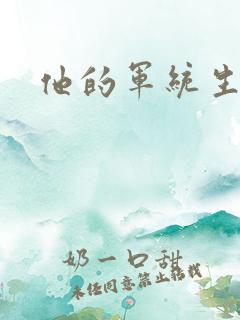 他的军统生
奶一口甜
未经同意禁止转载